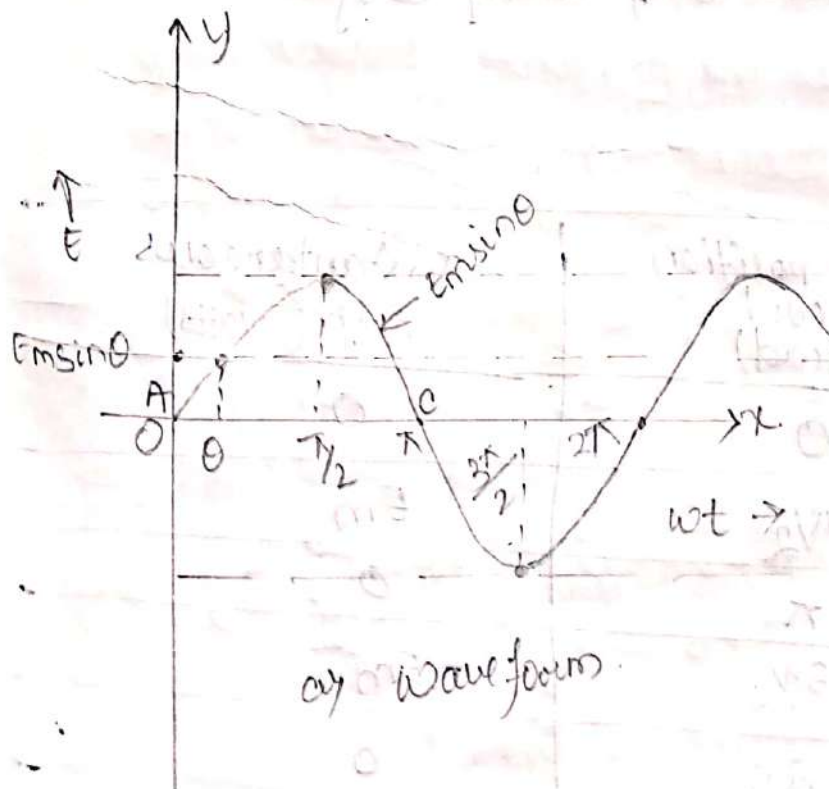 y
E
Emsinθ
Emsinθ
A
O
θ
π/2
π
C
3π/2
2π
x
wt →
a) Waveform